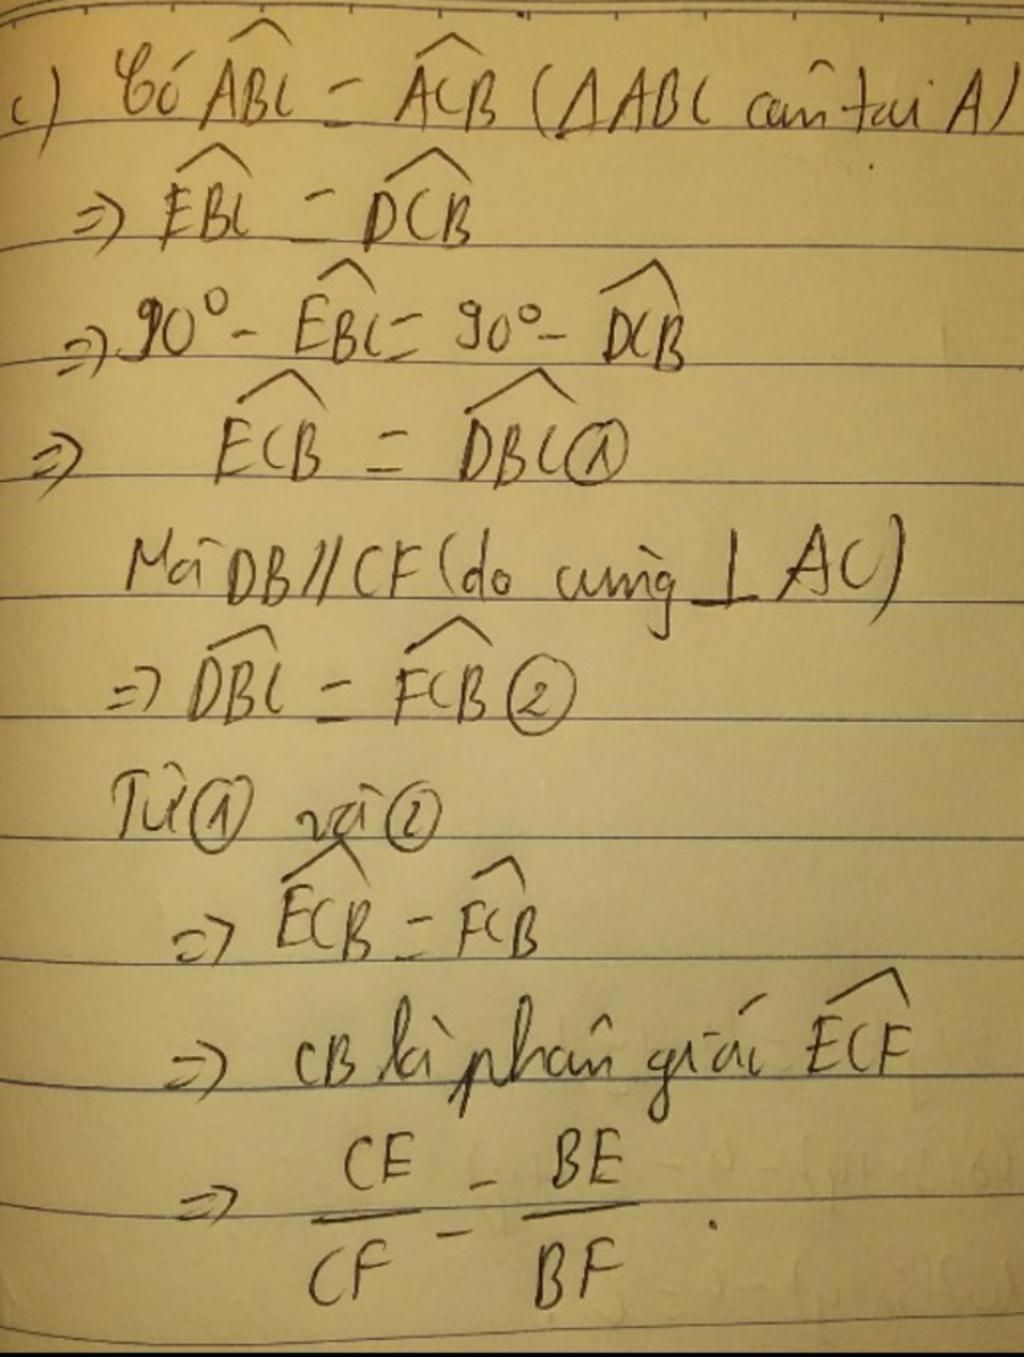 c) Có ABC^ = ACB^ (ΔABC cân tại A)
=> EBC^ = DCB^
=> 90° - EBC^ = 90° - DCB^
=> ECB^ = DBC^ ①
Mà DB // CF (do cùng ⊥ AC)
=> DBC^ = FCB^ ②
Từ ① và ②
=> ECB^ = FCB^
=> CB là phân giác ECF^
=> CE/CF = BE/BF.